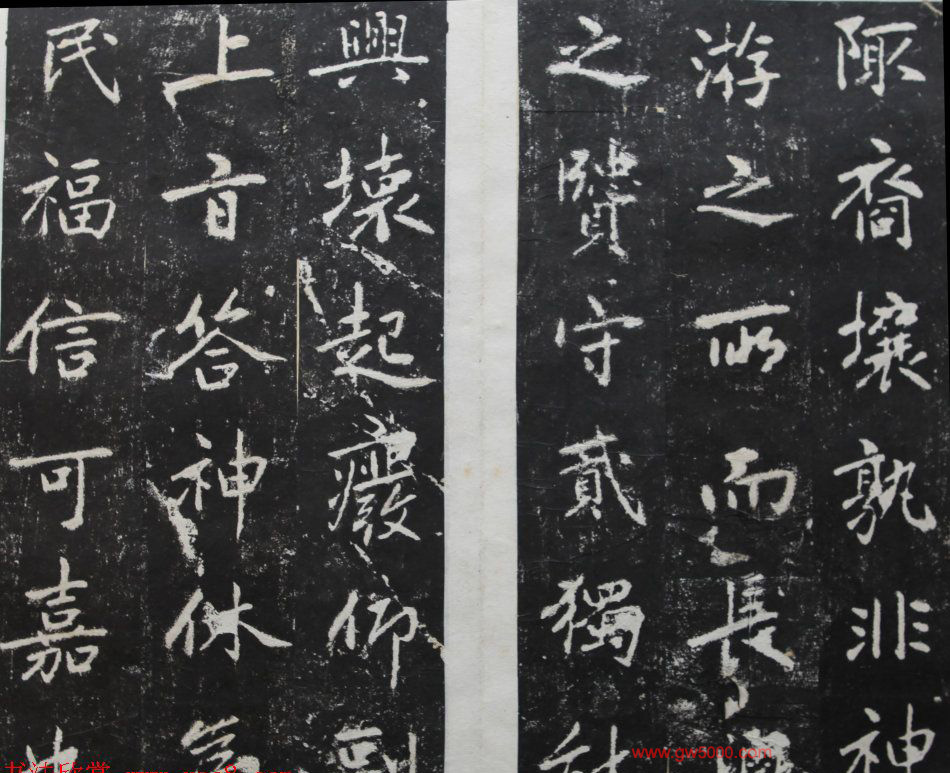 陬裔攘孰非神
游之所而長
之贒守貳獨
興壞起癈仰副
上旨答神休為
民福信可嘉也
www.gw5000.com
书法欣赏